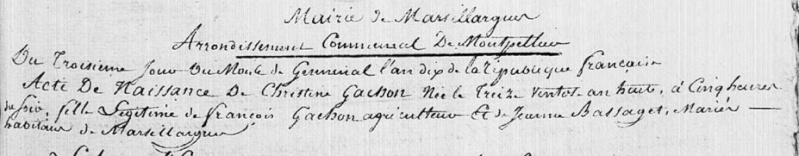 Mairie de Marsillargues
Arrondissement Communal De Montpellier
Du Troisieme Jour Du Mois de Germinal l'an dix de la République française
Acte De Naissance De Christine Gachon Née le Treize Ventose an huit, à Cinq heures
du soir, fille Legitime de françois Gachon agriculteur Et de Jeanne Bassaget, Mariés
habitans de Marsillargues